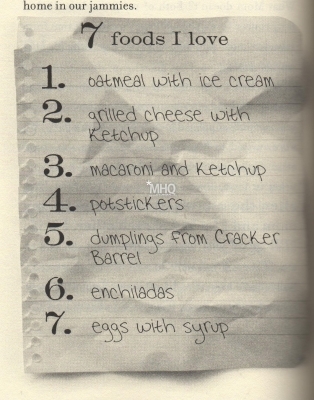 home in our jammies.
7 foods I love
1. oatmeal with ice cream
2. grilled cheese with
Ketchup
3. macaroni and Ketchup
*MHQ
4. potstickers
5. dumplings from Cracker
Barrel
6. enchiladas
7. eggs with syrup